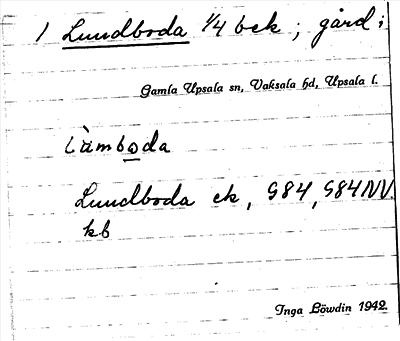 1 Lundboda 1/4 bek ; gård i
Gamla Upsala sn, Vaksala hd, Upsala l.
làmboda
Lundboda ek, S84, S84NV.
kb
Inga Löwdin 1942.